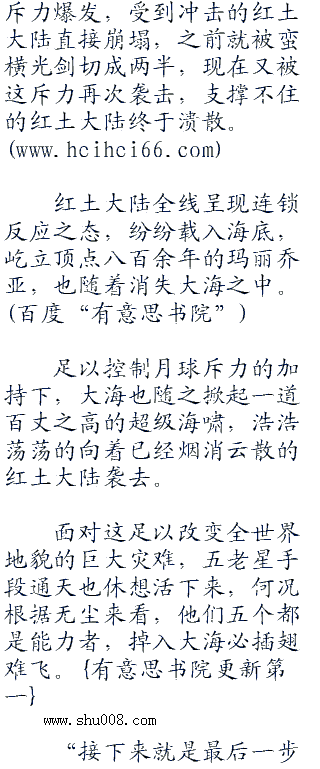 斥力爆发，受到冲击的红土
大陆直接崩塌，之前就被蛮
横光剑切成两半，现在又被
这斥力再次袭击，支撑不住
的红土大陆终于溃散。
(www.hcihci66.com)
红土大陆全线呈现连锁
反应之态，纷纷载入海底，
屹立顶点八百余年的玛丽乔
亚，也随着消失大海之中。
(百度“有意思书院”)
足以控制月球斥力的加
持下，大海也随之掀起一道
百丈之高的超级海啸，浩浩
荡荡的向着已经烟消云散的
红土大陆袭去。
面对这足以改变全世界
地貌的巨大灾难，五老星手
段通天也休想活下来，何况
根据无尘来看，他们五个都
是能力者，掉入大海必插翅
难飞。{有意思书院更新第
一}
www.shu008.com
“接下来就是最后一步